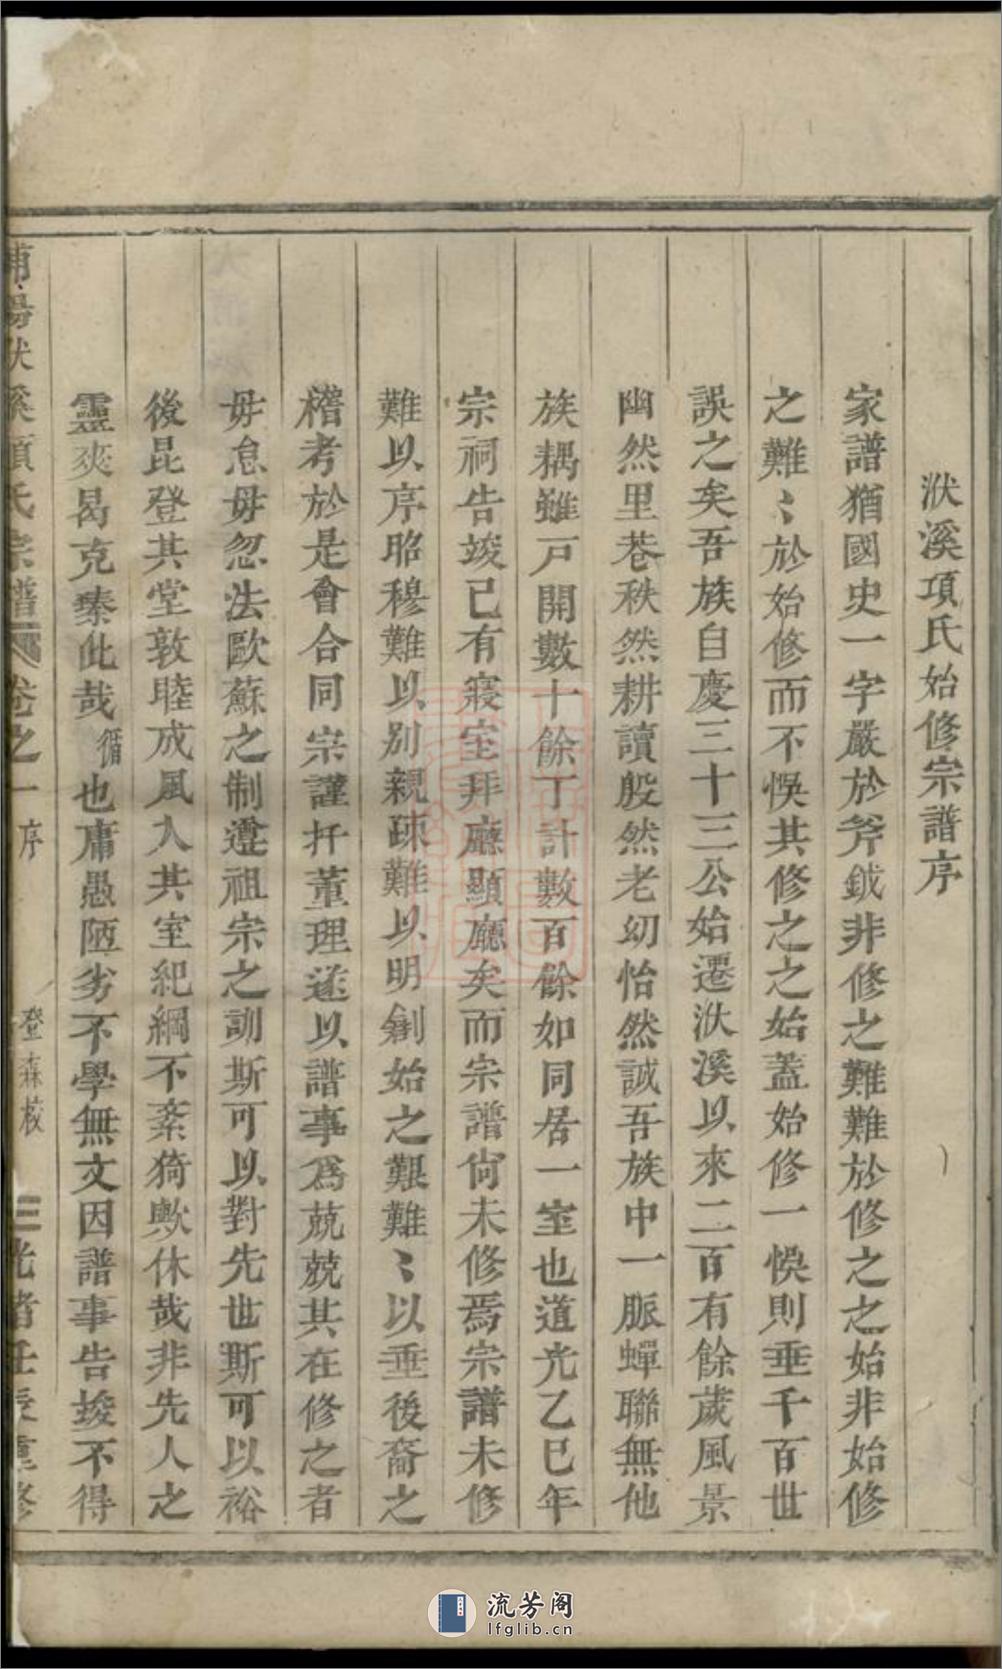 洑溪項氏始修宗譜序
家譜猶國史一字嚴於斧鉞非修之難難於修之之始非始修
之難〻於始修而不悞其修之之始蓋始修一悞則垂千百世
誤之矣吾族自慶三十三公始遷洑溪以來二百有餘歲風景
幽然里巷秩然耕讀殷然老幼怡然誠吾族中一脈蟬聯無他
族耦雖戸開數十餘丁計數百餘如同居一室也道光乙巳年
宗祠告竣已有寢室拜廳顯廳矣而宗譜尙未修焉宗譜未修
難以序昭穆難以别親疎難以明創始之艱難〻以垂後裔之
稽考於是會合同宗謹扦董理遂以譜事爲兢兢其在修之者
毋怠毋忽法歐蘇之制遵祖宗之訓斯可以對先世斯可以裕
後昆登其堂敦睦成風入其室紀綱不紊猗歟休哉非先人之
靈爽曷克臻此哉循也庸愚陋劣不學無文因譜事告竣不得
浦陽洑溪項氏宗譜 卷之一 序 登森校 三 光緒壬辰重修
流芳阁
lfglib.cn